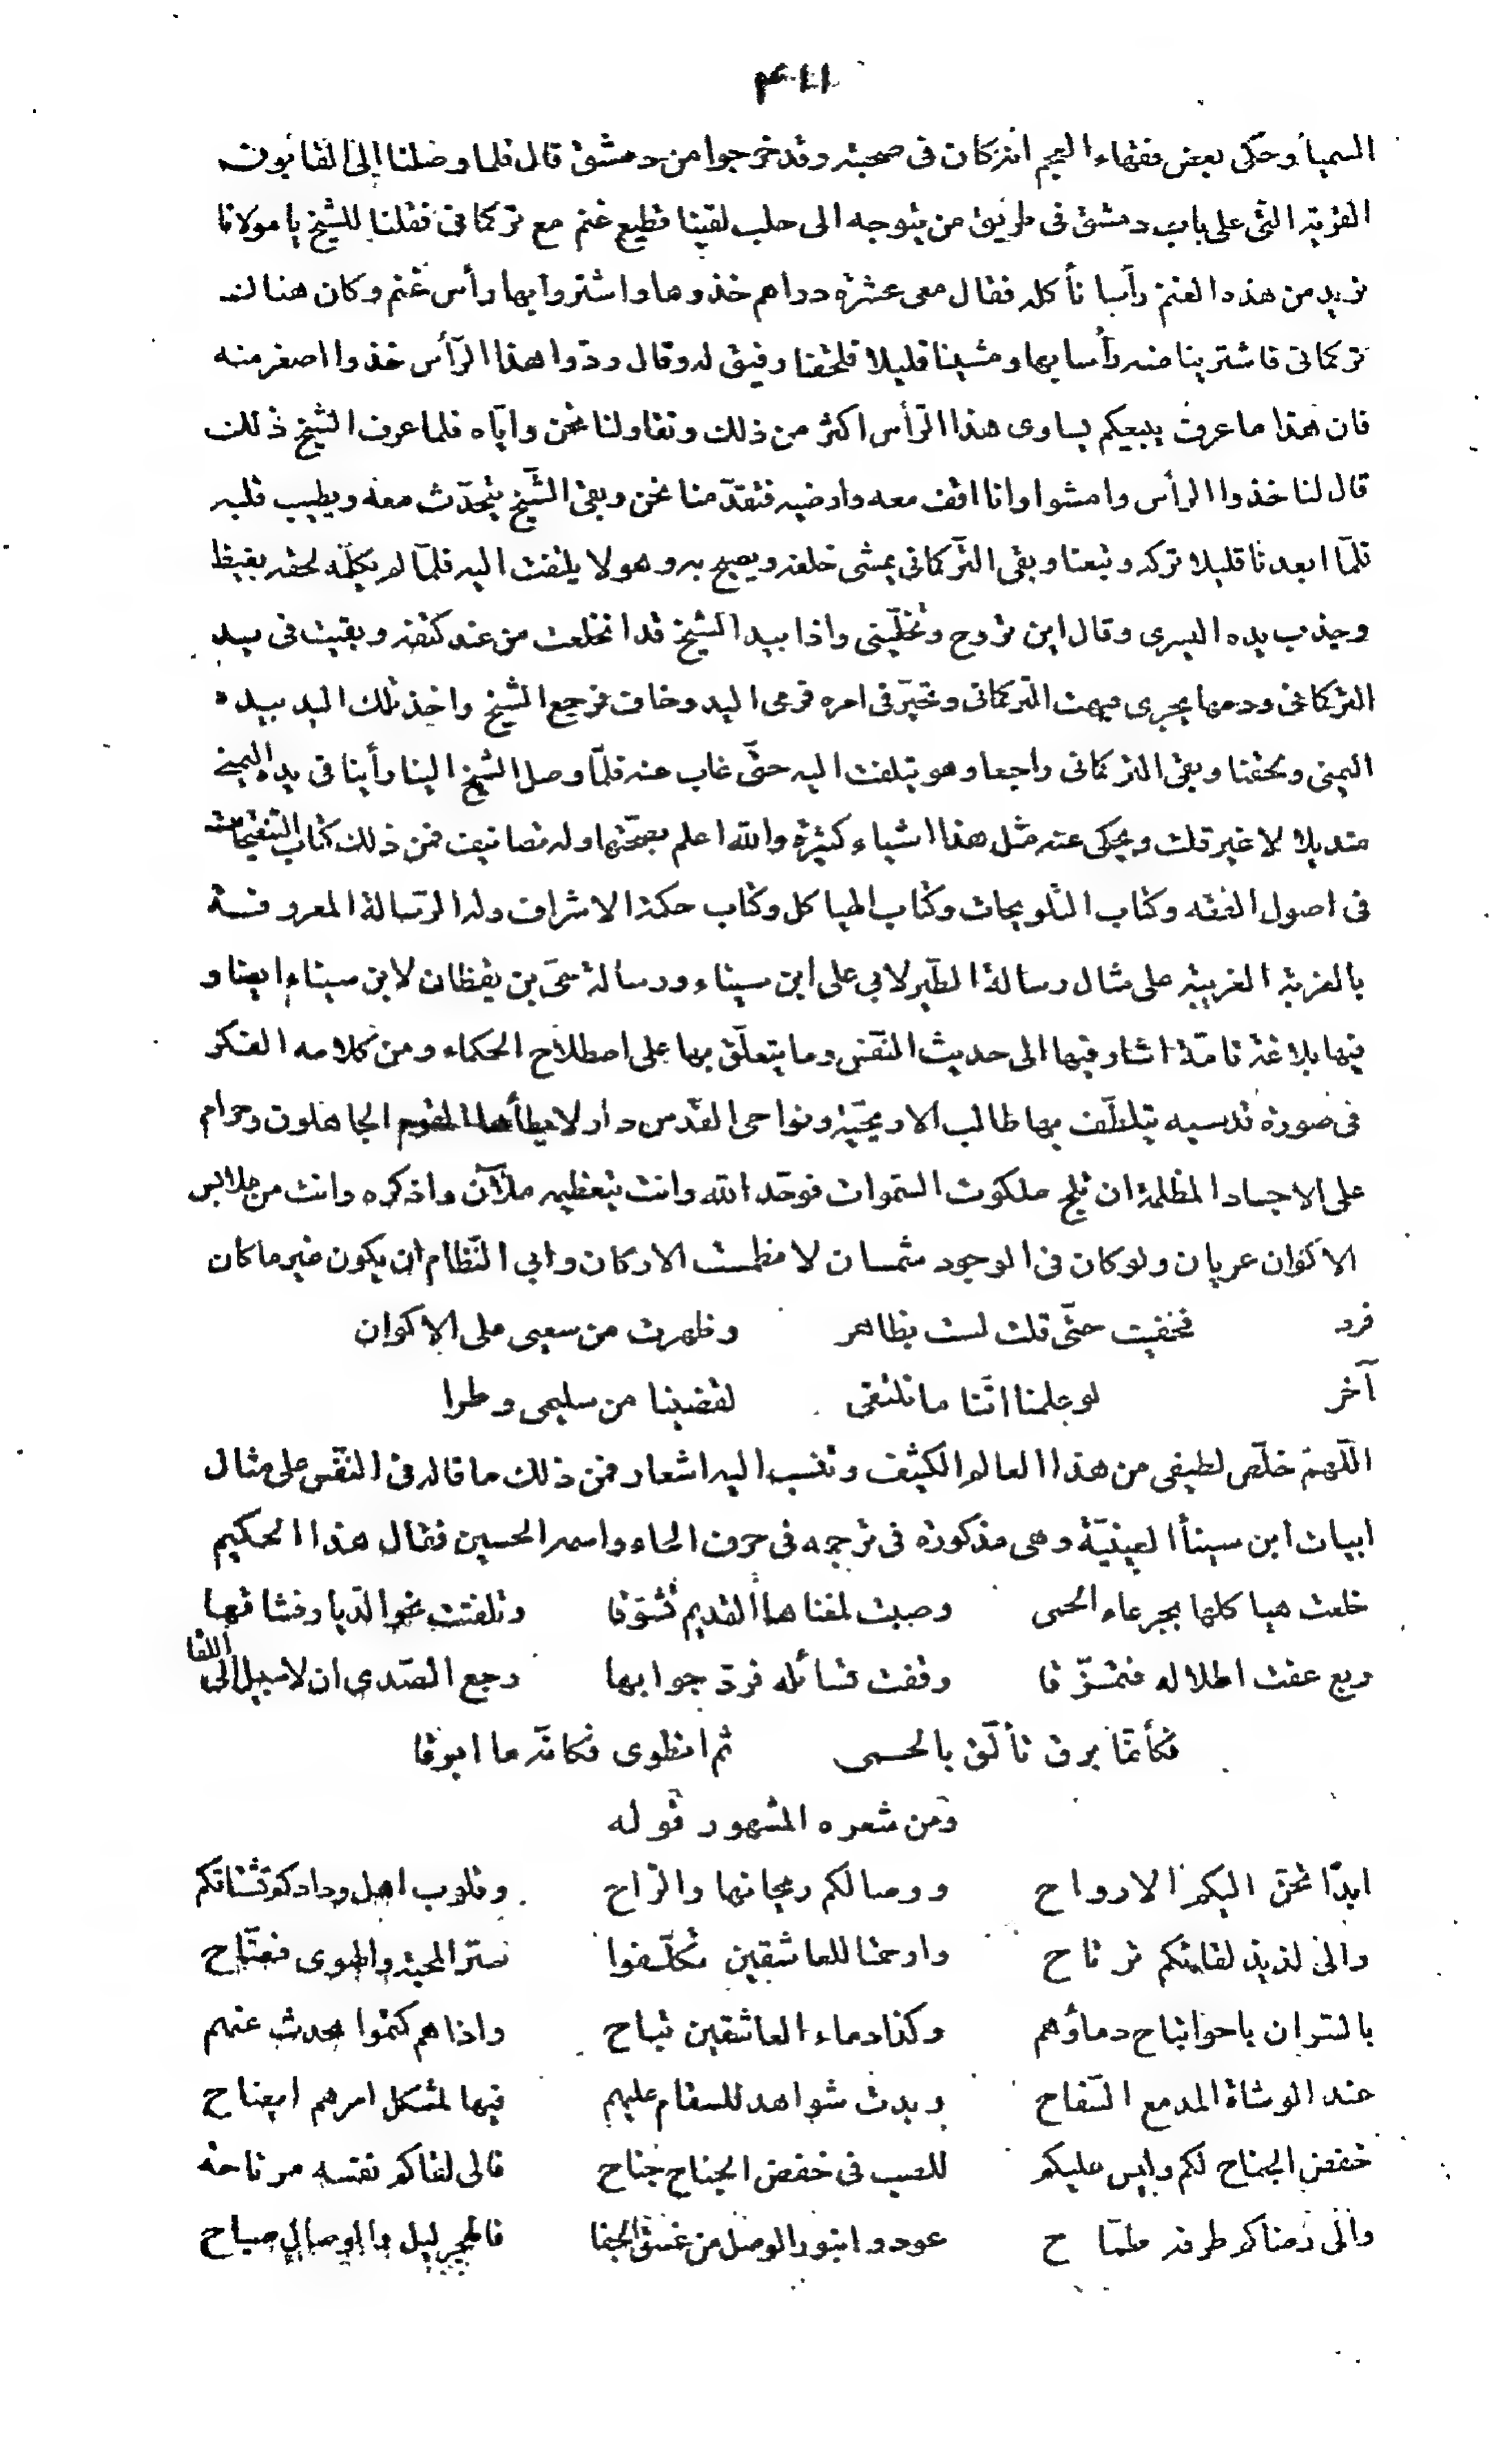 ۴۱۱
السميا وحكى بعض فقهاء العجم انه كان فى صحبته وقد خرجوا من دمشق قال فلما وصلنا الى القابون
القرية التى على باب دمشق فى طريق من يتوجه الى حلب لقينا قطيع غنم مع تركمانى فقلنا للشيخ يا مولانا
نريد من هذه الغنم رأسا نأكله فقال معى عشرة دراهم خذوها واشتروا بها رأس غنم وكان هناك
تركمانى فاشترينا منه رأسا بها ومشينا قليلا فلحقنا رفيق له وقال ردّوا هذا الرّأس خذوا اصغر منه
فان هذا ما عرف يبيعكم يساوى هذا الرّأس اكثر من ذلك وتقاولنا نحن وايّاه فلما عرف الشيخ ذلك
قال لنا خذوا الرأس وامشوا وانا اقف معه وارضيه فتقدّمنا نحن وبقى الشّيخ يتحدّث معه ويطيب قلبه
فلمّا ابعدنا قليلا تركه وتبعنا وبقى التّركمانى يمشى خلفه ويصيح به وهو لا يلتفت اليه فلمّا لم يكلّمه لحقه بغيظ
وجذب يده اليسرى وقال اين تروح وتخلّينى واذا بيد الشيخ قد انخلعت من عند كتفه وبقيت فى يد
التركمانى ودمها يجرى فبهت التركمانى وتحيّر فى امره فرمى اليد وخاف فرجع الشيخ واخذ تلك اليد بيده
اليمنى ولحقنا وبقى التركمانى راجعا وهو يتلفت اليه حتّى غاب عنه فلمّا وصل الشيخ الينا رأينا فى يده اليمنى
منديلا لا غير قلت ويحكى عنه مثل هذا اشياء كثيرة والله اعلم بصحّتها وله تصانيف فمن ذلك كتاب التنقيحات
فى اصول الفقه وكتاب التّلويحات وكتاب الهياكل وكتاب حكمة الاشراف وله الرّسالة المعروفة
بالغربة الغريبة على مثال رسالة الطّير لابى على ابن سيناء ورسالة حىّ بن يقظان لابن سيناء ايضا و
فيها بلاغة تامّة اشار فيها الى حديث النّفس وما يتعلّق بها على اصطلاح الحكماء ومن كلامه الفكر
فى صورة قدسيه يتلطّف بها طالب الاريحيّة ونواحى القدس دار لا يطأها القوم الجاهلون وحرام
على الاجساد المظلمة ان تلج ملكوت السّموات فوحّد الله وانت بتعظيمه ملآن واذكره وانت من ملابس
الاكوان عريان ولو كان فى الوجود شمسان لانطمست الاركان وابى النّظام ان يكون غير ما كان
فرد فخفيت حتّى قلت لست بظاهر وظهرت من سعيى على الاكوان
آخر لو علمنا انّنا ما نلتقى لقضينا من سليمى وطرا
اللّهمّ خلّص لطيفى من هذا العالم الكثيف وتنسب اليه اشعار فمن ذلك ما قاله فى النّفس على مثال
ابيات ابن سينأ العينيّة وهى مذكورة فى ترجمه فى حرف الحاء واسمه الحسين فقال هذا الحكيم
خلعت هياكلها بجرعاء الحمى وصبت لمغناها القديم تشوّقا وتلفتت نحو الدّيار فشاقها
ربع عفت اطلاله فتمزّقا وقفت تسائله فردّ جوابها رجع الصّدى ان لا سبيل الى اللقا
فكأنّما برق تألّق بالحمى ثم انطوى فكانّه ما ابرقا
ومن شعره المشهور قوله
ابدًا تحنّ اليكم الارواح ووصالكم ريحانها والرّاح وقلوب اهل ودادكم تشتاقكم
والى لذيذ لقائكم ترتاح وارحمتا للعاشقين تكلّفوا ستر المحبّة والهوى فضّاح
بالسّر ان باحوا تباح دماؤهم وكذا دماء العاشقين تباح واذا هم كتموا تحدث عنهم
عند الوشاة المدمع السّفاح وبدت شواهد للسقام عليهم فيها لمشكل امرهم ايضاح
خفض الجناح لكم وليس عليكم للصب فى خفض الجناح جناح فالى لقاكم نفسه مرتاحة
والى رضاكم طرفه طمّاح عودوا بنور الوصل من غسق الجفا فالهجر ليل والوصال صباح